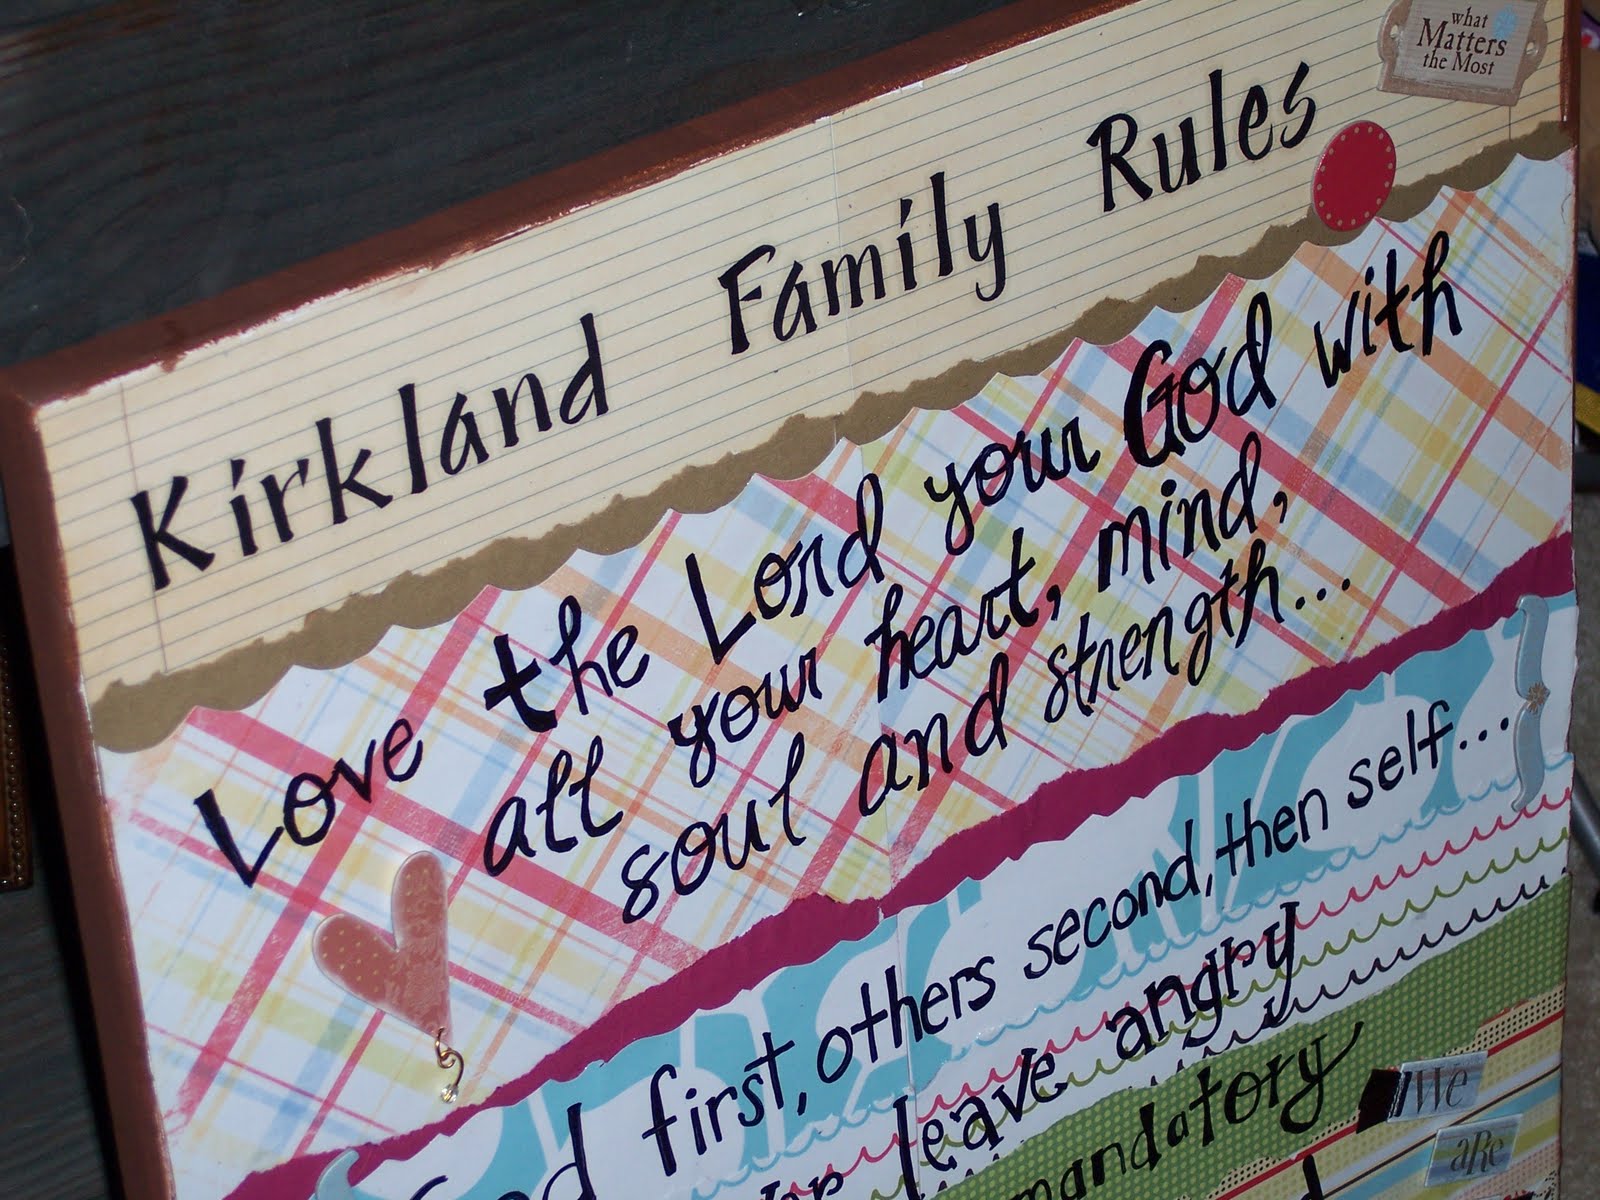 what
Matters
the Most
Kirkland Family Rules
Love the Lord your God with
all your heart, mind,
soul and strength...
first, others second, then self...
leave angry
mandatory
We
aRe